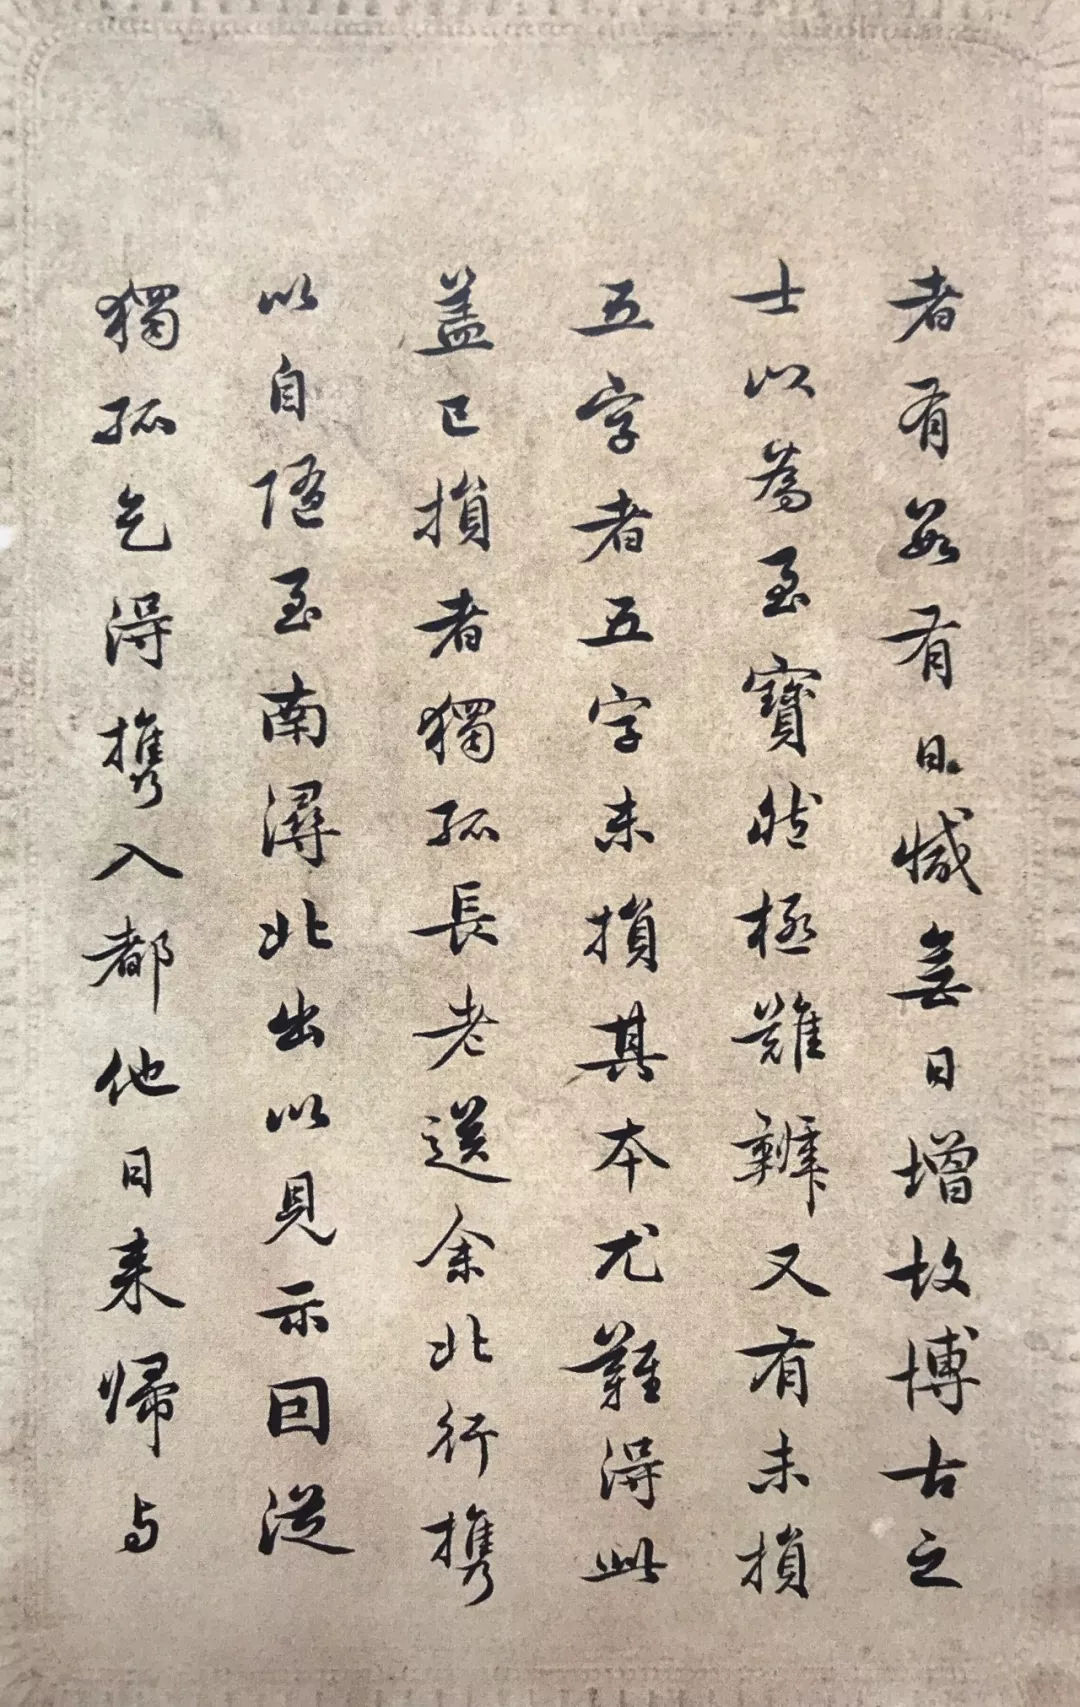 者有數有日減無日增故博古之
士以為至寶然極難辨又有未損
五字者五字未損其本尤難得此
蓋已損者獨孤長老送余北行攜
以自隨至南潯北出以見示因從
獨孤乞得攜入都他日来歸与